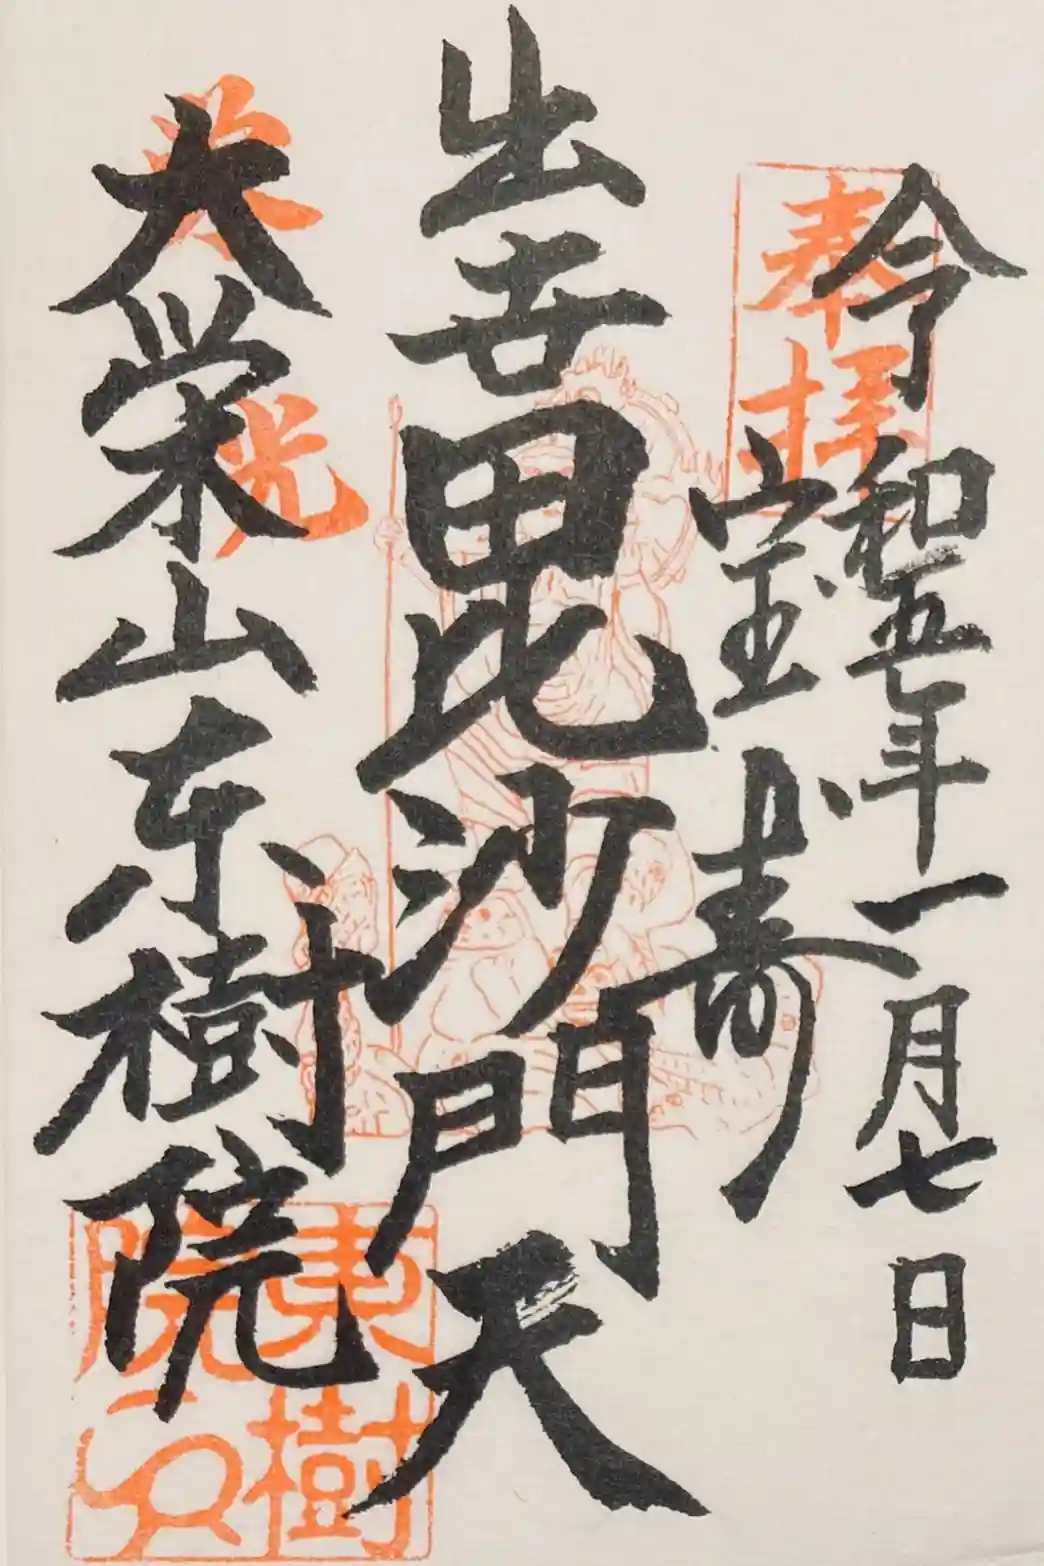 奉拝
令和五年一月七日
宝寿
出世毘沙門天
大栄山東樹院
光
東樹院印